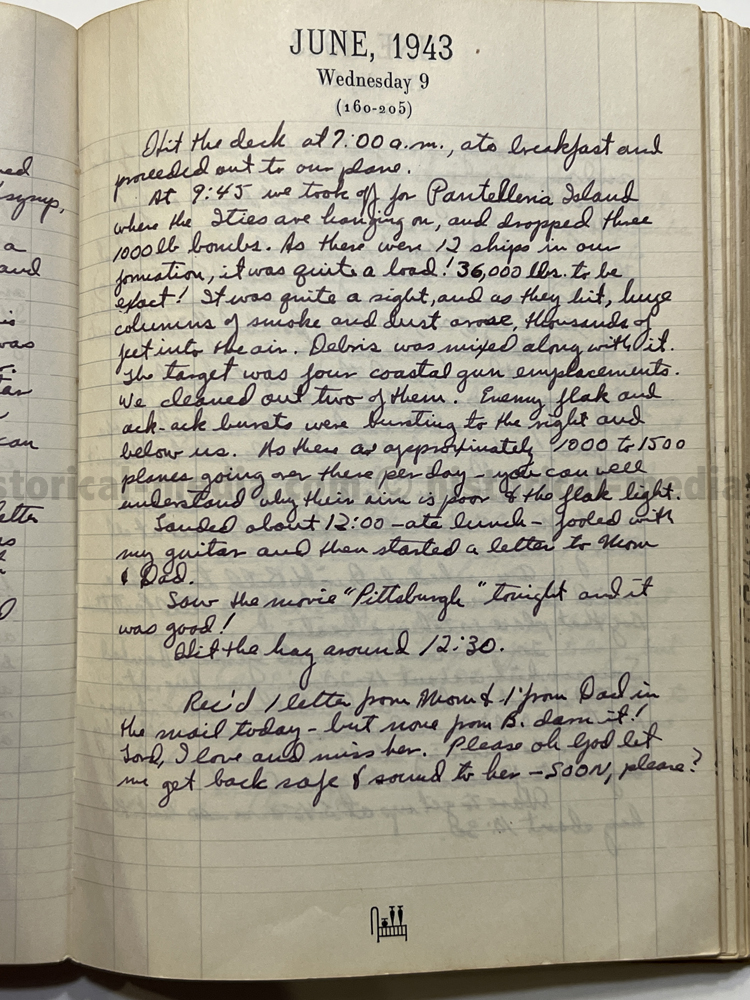 JUNE, 1943
Wednesday 9
(160-205)
Hit the deck at 7:00 a.m., ate breakfast and
proceeded out to our plane.
At 9:45 we took off for Pantelleria Island
where the Ities are hanging on, and dropped three
1000 lb bombs. As there were 12 ships in our
formation, it was quite a load! 36,000 lbs. to be
exact! It was quite a sight, and as they hit, huge
columns of smoke and dust arose, thousands of
feet into the air. Debris was mixed along with it.
The target was four coastal gun emplacements.
We cleaned out two of them. Enemy flak and
ack-ack bursts were bursting to the right and
below us. As there are approximately 1000 to 1500
planes going over there per day - you can well
understand why their aim is poor & the flak light.
Landed about 12:00 - ate lunch - fooled with
my guitar and then started a letter to Mom
& Dad.
Saw the movie "Pittsburgh" tonight and it
was good!
Hit the hay around 12:30.
Rec'd 1 letter from Mom & 1 from Dad in
the mail today - but none from B. damit!
Lord, I love and miss her. Please oh God let
me get back safe & sound to her - SOON, please?